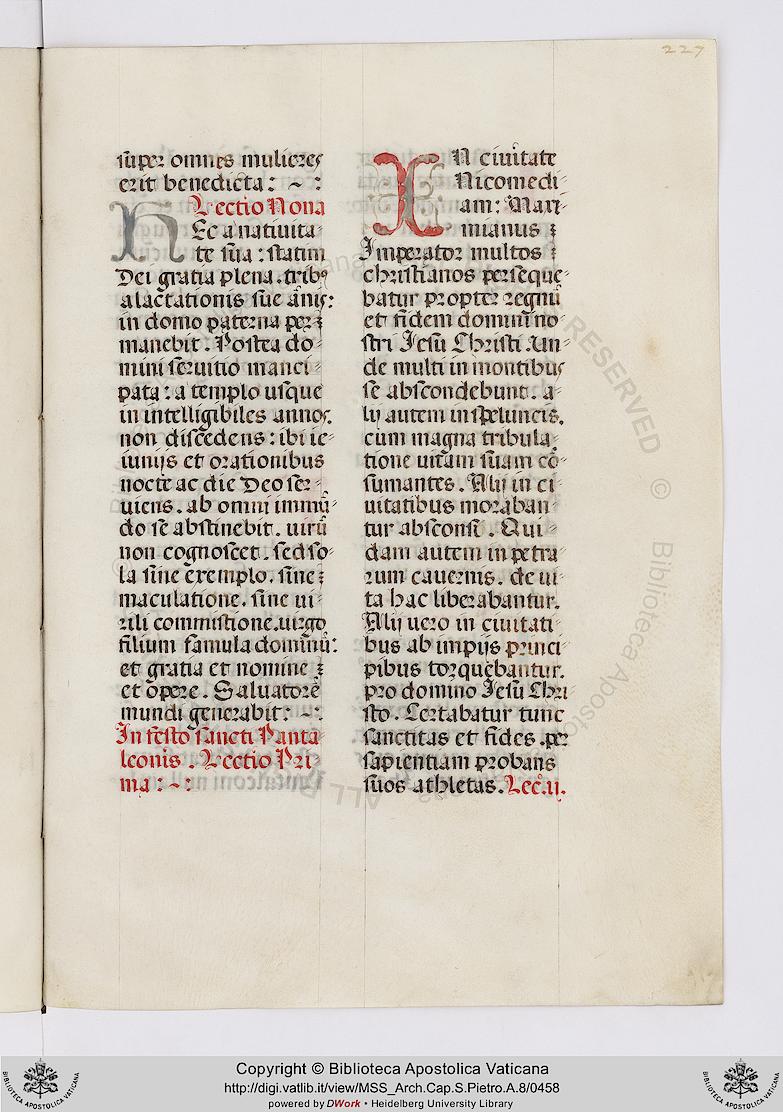 227
super omnes mulieres
erit benedicta : ~ :
Lectio Nona
Hec a nativita-
te sua : statim
Dei gratia plena. tribꝰ
alactationis sue ānis:
in domo paterna per⁊
manebit. Postea do-
mini servitio manci-
pata : a templo usque
in intelligibiles annos.
non discedens : ibi ie-
iunijs et orationibus
nocte ac die Deo ser-
uiens. ab omni immū-
do se abstinebit. uirū
non cognoscet. sed so-
la sine exemplo. sine⁊
maculatione. sine ui-
rili commistione. uirgo
filium famula dominū:
et gratia et nomine ⁊
et opere. Salvatorē
mundi generabit : ~ :
In festo sancti Panta-
leonis. Lectio Pri-
ma : ~ :
IN civitate
Nicomedi-
am : Maxi-
mianus ⁊
Imperator multos ⁊
christianos perseque-
batur propter regnū
et fidem dominī no-
stri Jesu Christi. Un-
de multi in montibus
se abscondebunt. a-
lij autem in speluncis.
cum magna tribula-
tione uitam suam cō-
sumantes. Alij in ci-
uitatibus moraban-
tur absconsi. Qui-
dam autem in petra-
rum cavernis. de ui-
ta hac liberabantur.
Alij uero in ciuitati-
bus ab impijs princi-
pibus torquebantur.
pro domino Jesu Chri-
sto. Certabatur tunc
sanctitas et fides. per
sapientiam probans
suos athletas. Lec̄. ij.
ALL RIGHTS RESERVED © Biblioteca Apostolica Vaticana
Copyright © Biblioteca Apostolica Vaticana
http://digi.vatlib.it/view/MSS_Arch.Cap.S.Pietro.A.8/0458
powered by DWork • Heidelberg University Library
BIBLIOTECA APOSTOLICA VATICANA
BIBLIOTECA APOSTOLICA VATICANA